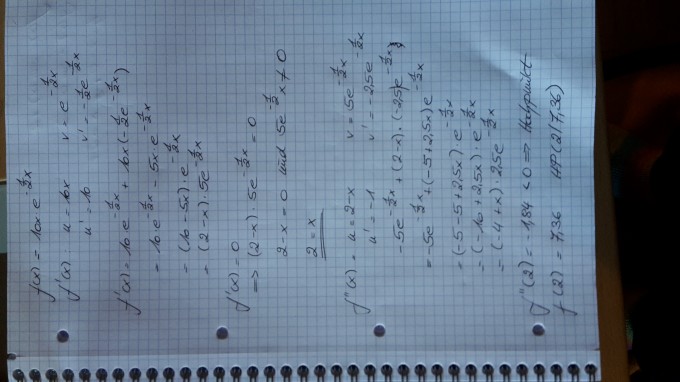 f(x) = 10x e^{-\frac{1}{2}x}
f'(x) u = 10x v = e^{-\frac{1}{2}x}
u' = 10 v' = -\frac{1}{2}e^{-\frac{1}{2}x}
f'(x) = 10 e^{-\frac{1}{2}x} + 10x (-\frac{1}{2}e^{-\frac{1}{2}x})
= 10 e^{-\frac{1}{2}x} - 5x e^{-\frac{1}{2}x}
= (10 - 5x) · e^{-\frac{1}{2}x}
= (2 - x) · 5e^{-\frac{1}{2}x}
f'(x) = 0
=> (2 - x) · 5e^{-\frac{1}{2}x} = 0
2 - x = 0 und 5e^{-\frac{1}{2}x} ≠ 0
2 = x
f''(x) = u = 2 - x v = 5e^{-\frac{1}{2}x}
u' = -1 v' = -2,5e^{-\frac{1}{2}x}
-5e^{-\frac{1}{2}x} + (2 - x) · (-2,5e^{-\frac{1}{2}x})
= -5e^{-\frac{1}{2}x} + (-5 + 2,5x) e^{-\frac{1}{2}x}
= (-5 - 5 + 2,5x) e^{-\frac{1}{2}x}
= (-10 + 2,5x) · e^{-\frac{1}{2}x}
= (-4 + x) · 2,5e^{-\frac{1}{2}x}
f''(2) = -1,84 < 0 => Hochpunkt
f(2) = 7,36 HP(2/7,36)